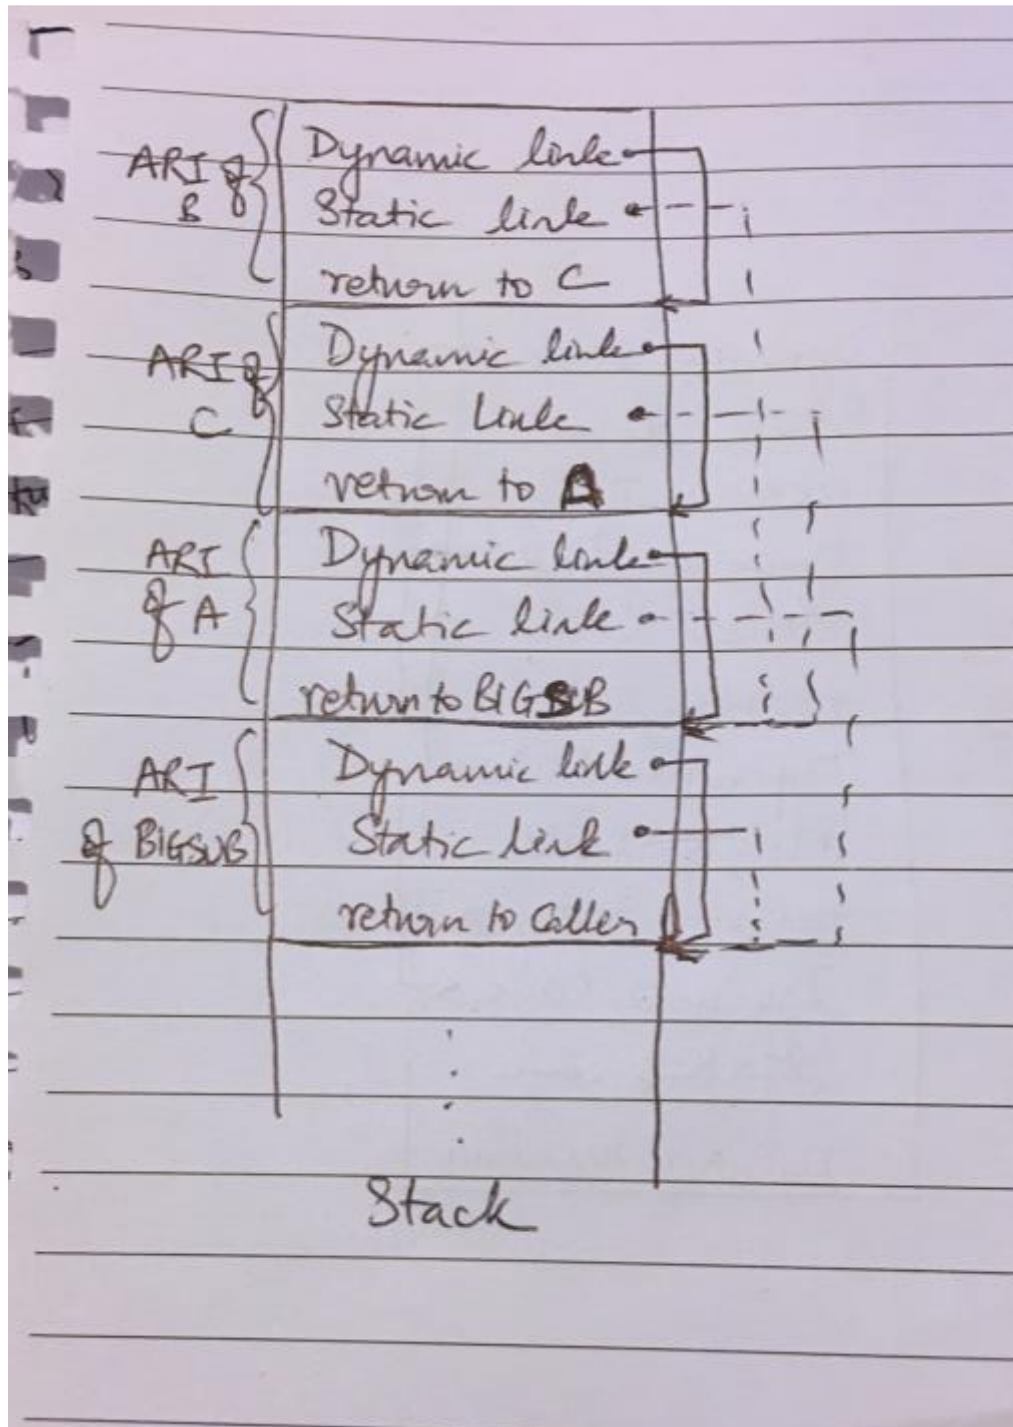 ARI of
B
Dynamic link
Static link
return to C
ARI of
C
Dynamic link
Static Link
return to A
ARI
of A
Dynamic link
Static link
return to BIGSUB
ARI
of BIGSUB
Dynamic link
Static link
return to Caller
Stack